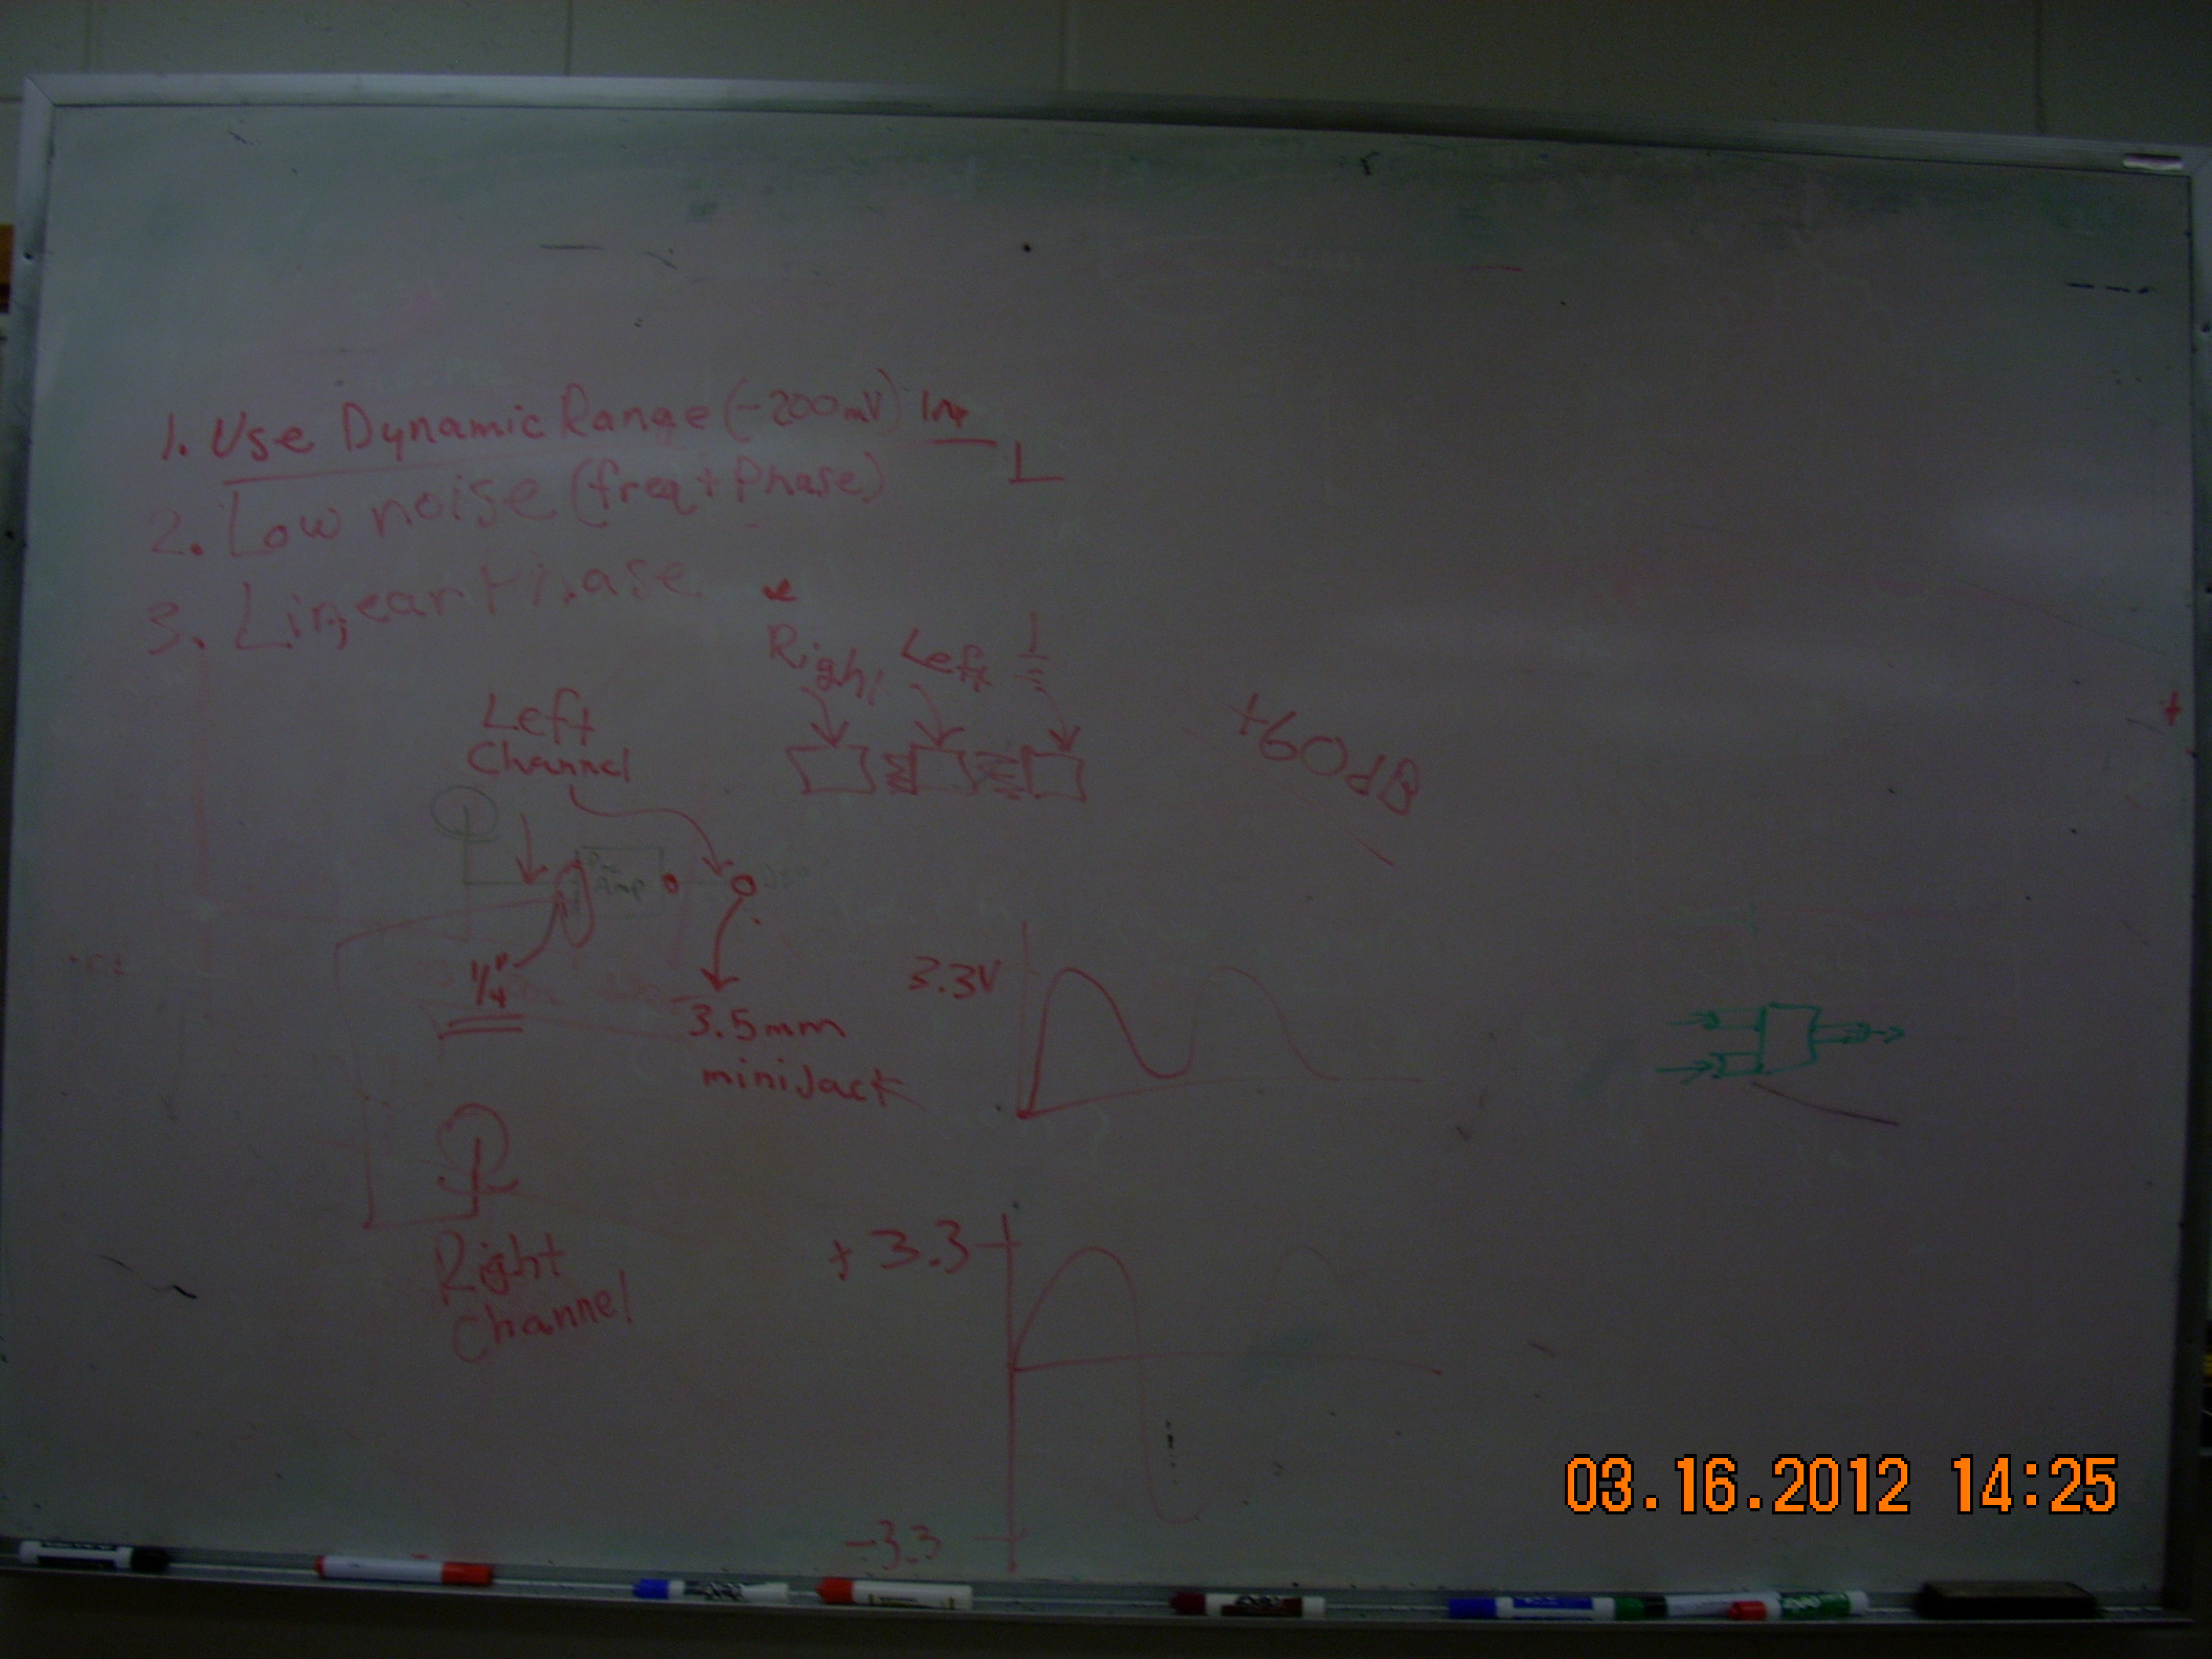 1. Use Dynamic Range (-200mV) In
2. Low noise (freq + Phase)
3. Linear Phase
Right Left
Left
Channel
+60dB
Pre
Amp
1/4"
3.5mm
miniJack
3.3V
Right
Channel
+3.3
-3.3
03.16.2012 14:25